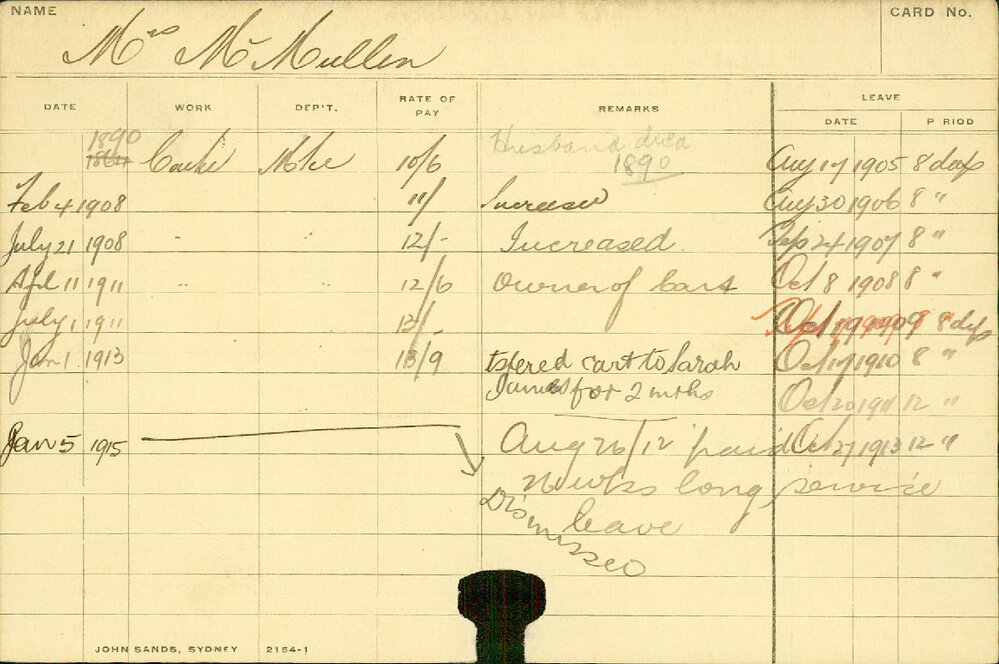 NAME
CARD No.
Mrs McMullen
DATE WORK DEP'T. RATE OF PAY REMARKS LEAVE
DATE P RIOD
1890 Husband died
1864 Mkt 10/6 1890 Aug 17 1905 8 days
Feb 4 1908 11/ Increased Aug 30 1906 8 "
July 21 1908 " " 12/- Increased. Sep 24 1907 8 "
Apl 11 1911 " " 12/6 Owner of Cart Oct 8 1908 8 "
July 1 1911 8 days
Jan 1. 1913 13/9 tsfered cart to Sarah Oct 17 1910 8 "
James for 2 mths Oct 20 1911 12 "
Jan 5 1915 Aug 26/12 paid Oct 27 1913 12 "
26 wks long service
leave
Dismissed
JOHN SANDS, SYDNEY 2154-1